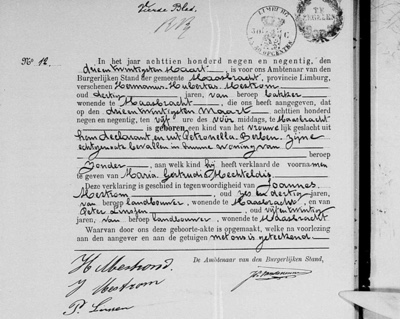 Vierde Blad.
LIMBURG
TE ZEGELEN
No 12.
In het jaar achttien honderd negen en negentig, den
drieentwintigsten Maart, is voor ons Ambtenaar van den
Burgerlijken Stand der gemeente Maasbracht, provincie Limburg,
verschenen Hermanus Hubertus Mestrom
oud dertig jaren, van beroep bakker
wonende te Maasbracht, die ons heeft aangegeven, dat
op den drieentwintigsten Maart achttien honderd
negen en negentig, ten vijf ure des voor middags, te Maasbracht
is geboren een kind van het vrouwelijk geslacht uit
hem declarant en uit Petronella Buben, zijne
echtgenoote bevallen in hunne woning van
beroep
Zonder, aan welk kind hij heeft verklaard de voornamen
te geven van Maria Gertrudis Mechteldis.
Deze verklaring is geschied in tegenwoordigheid van Joannes
Mestrom, oud zes en dertig jaren,
van beroep landbouwer, wonende te Maasbracht, en van
Peter Linssen, oud vijfentwintig
jaren, van beroep landbouwer, wonende te Maasbracht
Waarvan door ons deze geboorte-akte is opgemaakt, welke na voorlezing
aan den aangever en aan de getuigen met ons is geteekend.
De Ambtenaar van den Burgerlijken Stand,
H Mestrom.
J Mestrom
P. Linssen